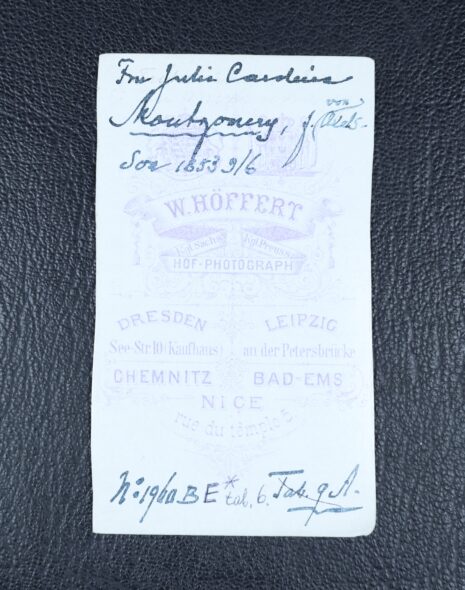 Fru Julie
Montgomery, f. von
1853 9/6
W. HÖFFERT
Kgl. Sächs. Kgl. Preuss.
HOF-PHOTOGRAPH
DRESDEN LEIPZIG
See-Str. 10 (Kaufhaus) an der Petersbrücke
CHEMNITZ BAD-EMS
NICE
rue du temple 5.
No 1960 B E * tab. 6. Tab. 9 A.